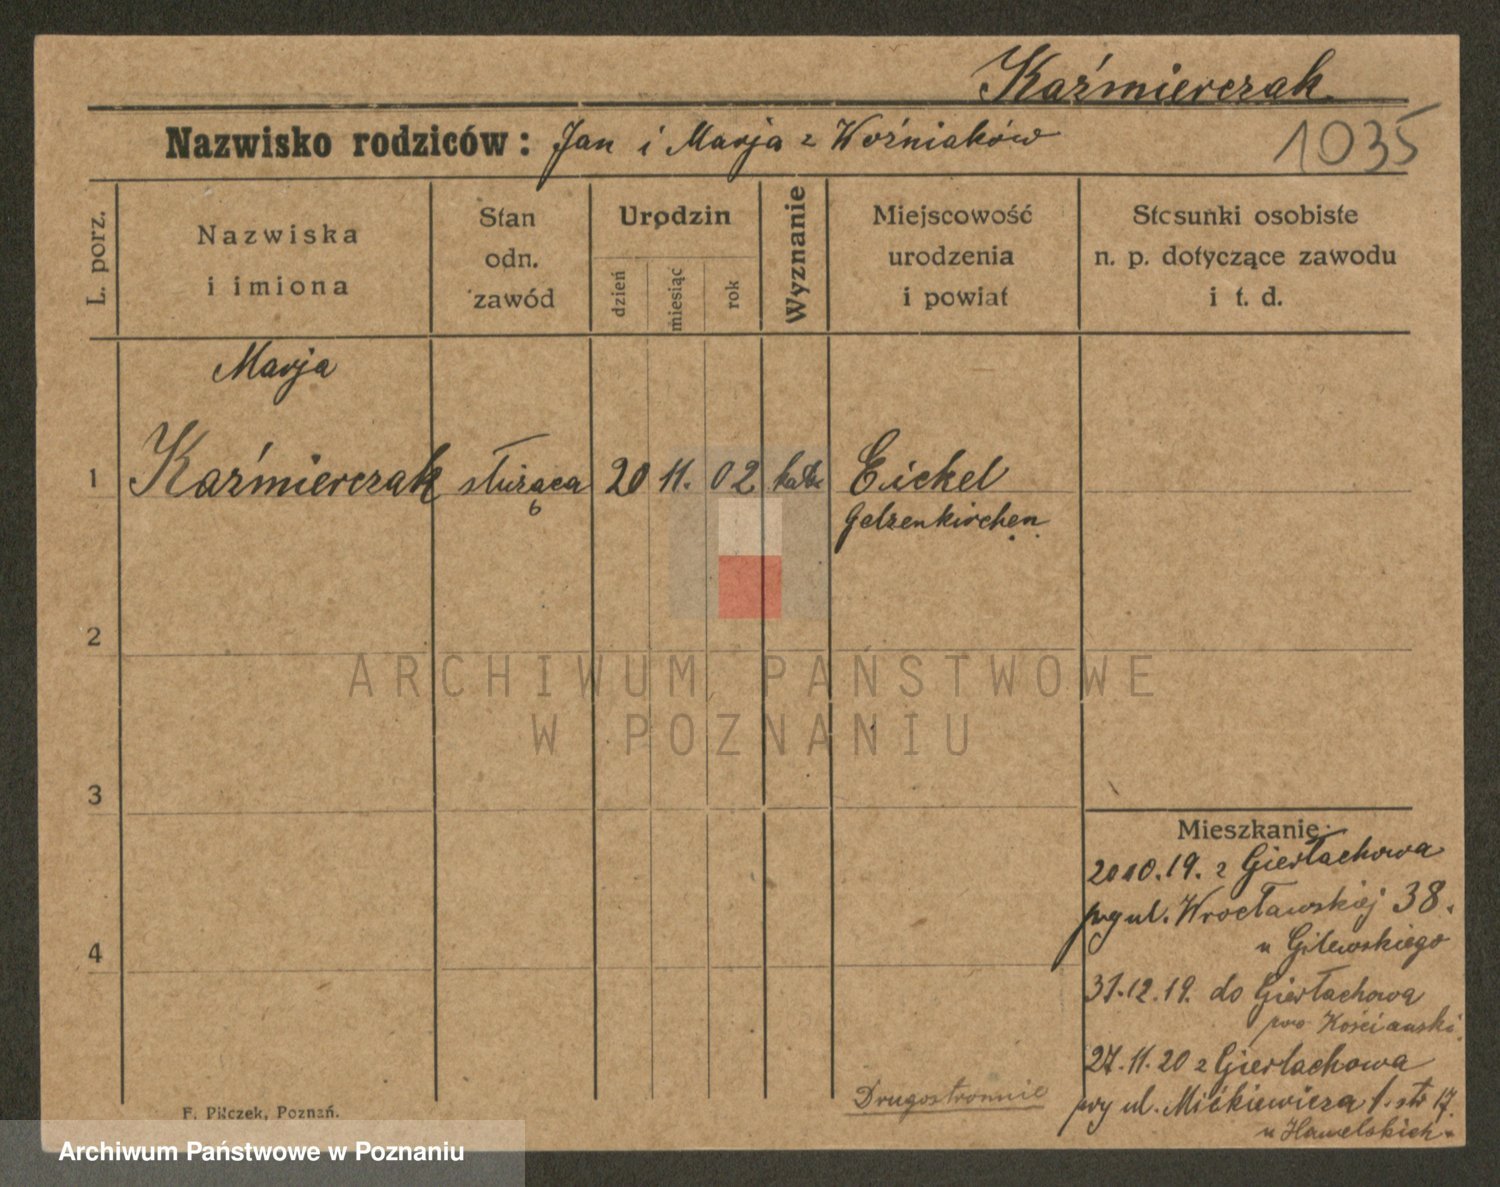 Kaźmierczak
Nazwisko rodziców: Jan i Marja z Woźniaków
1035
L. porz.
Nazwiska
i imiona
Stan
odn.
zawód
Urodzin
dzień
miesiąc
rok
Wyznanie
Miejscowość
urodzenia
i powiat
Stosunki osobiste
n. p. dotyczące zawodu
i t. d.
Marja
1 Kaźmierczak służąca 20 11. 02 kat. Eickel
6
Gelzenkirchen
2
ARCHIWUM PAŃSTWOWE
W POZNANIU
3
Mieszkanie:
20 10.19. z Gierłachowa
przy ul. Wrocławskiej 38.
u Gilewskiego
4
31.12.19. do Gierłachowa
pow Kościański
27.11.20 z Gierlachowa
przy ul. Mickiewicza 1. str 17.
u Hamelskich.
Drugostronnie
F. Pilczek, Poznań.
Archiwum Państwowe w Poznaniu